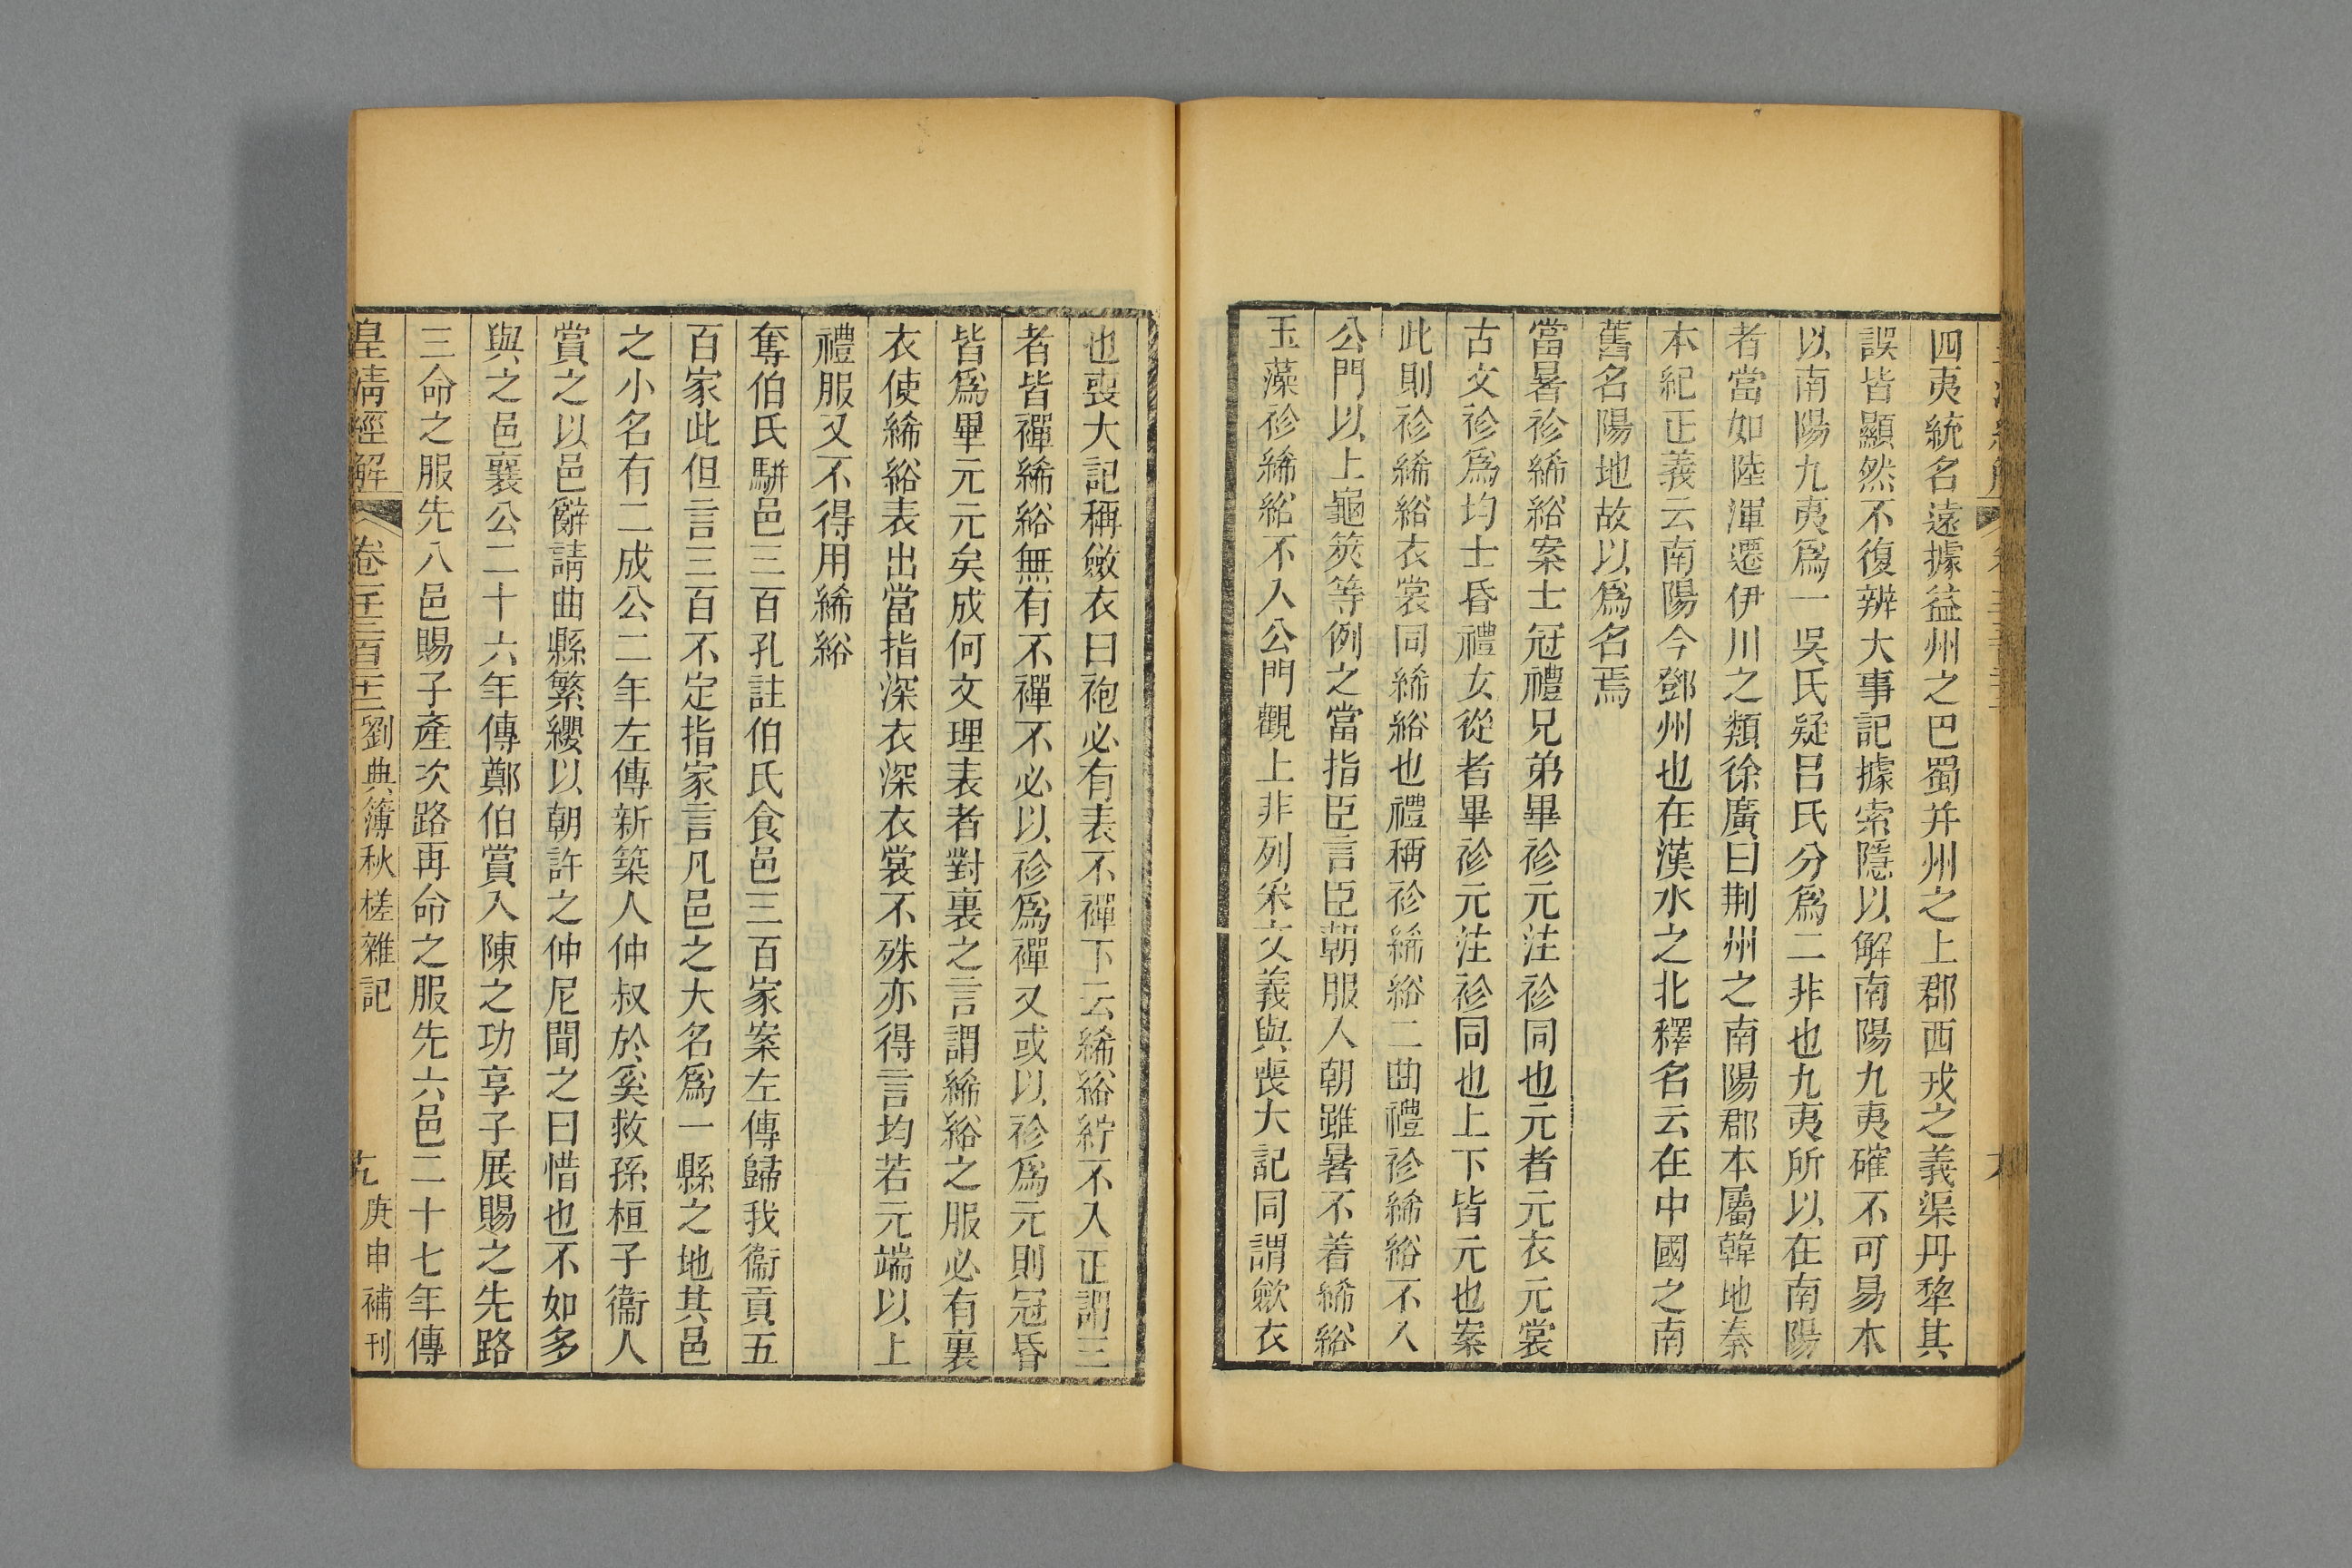 四夷統名遠據益州之巴蜀并州之上郡西戎之義渠丹犂其
誤皆顯然不復辨大事記據索隱以解南陽九夷確不可易本
以南陽九夷爲一吳氏疑呂氏分爲二非也九夷所以在南陽
者當如陸渾遷伊川之類徐廣曰荆州之南陽郡本屬韓地秦
本紀正義云南陽今鄧州也在漢水之北釋名云在中國之南
舊名陽地故以爲名焉
當暑袗絺綌案士冠禮兄弟畢袗元注袗同也元者元衣元裳
古文袗爲均士昏禮女從者畢袗元注袗同也上下皆元也案
此則袗絺綌衣裳同絺綌也禮稱袗絺綌二曲禮袗絺綌不入
公門以上龜筴等例之當指臣言臣朝服人朝雖暑不着絺綌
玉藻袗絺綌不入公門觀上非列采文義與喪大記同謂斂衣
也喪大記稱斂衣曰袍必有表不襌下云絺綌紵不入正謂三
者皆襌絺綌無有不襌不必以袗爲襌又或以袗爲元則冠昏
皆爲畢元元矣成何文理表者對裏之言謂絺綌之服必有裏
衣使絺綌表出當指深衣深衣裳不殊亦得言均若元端以上
禮服又不得用絺綌
奪伯氏駢邑三百孔註伯氏食邑三百家案左傳歸我衞貢五
百家此但言三百不定指家言凡邑之大名爲一縣之地其邑
之小名有二成公二年左傳新築人仲叔於奚救孫桓子衞人
賞之以邑辭請曲縣繁纓以朝許之仲尼聞之曰惜也不如多
與之邑襄公二十六年傳鄭伯賞入陳之功享子展賜之先路
三命之服先八邑賜子產次路再命之服先六邑二十七年傳
皇清經解 卷一千三百二十三 劉典簿秋槎雜記 庚申補刊